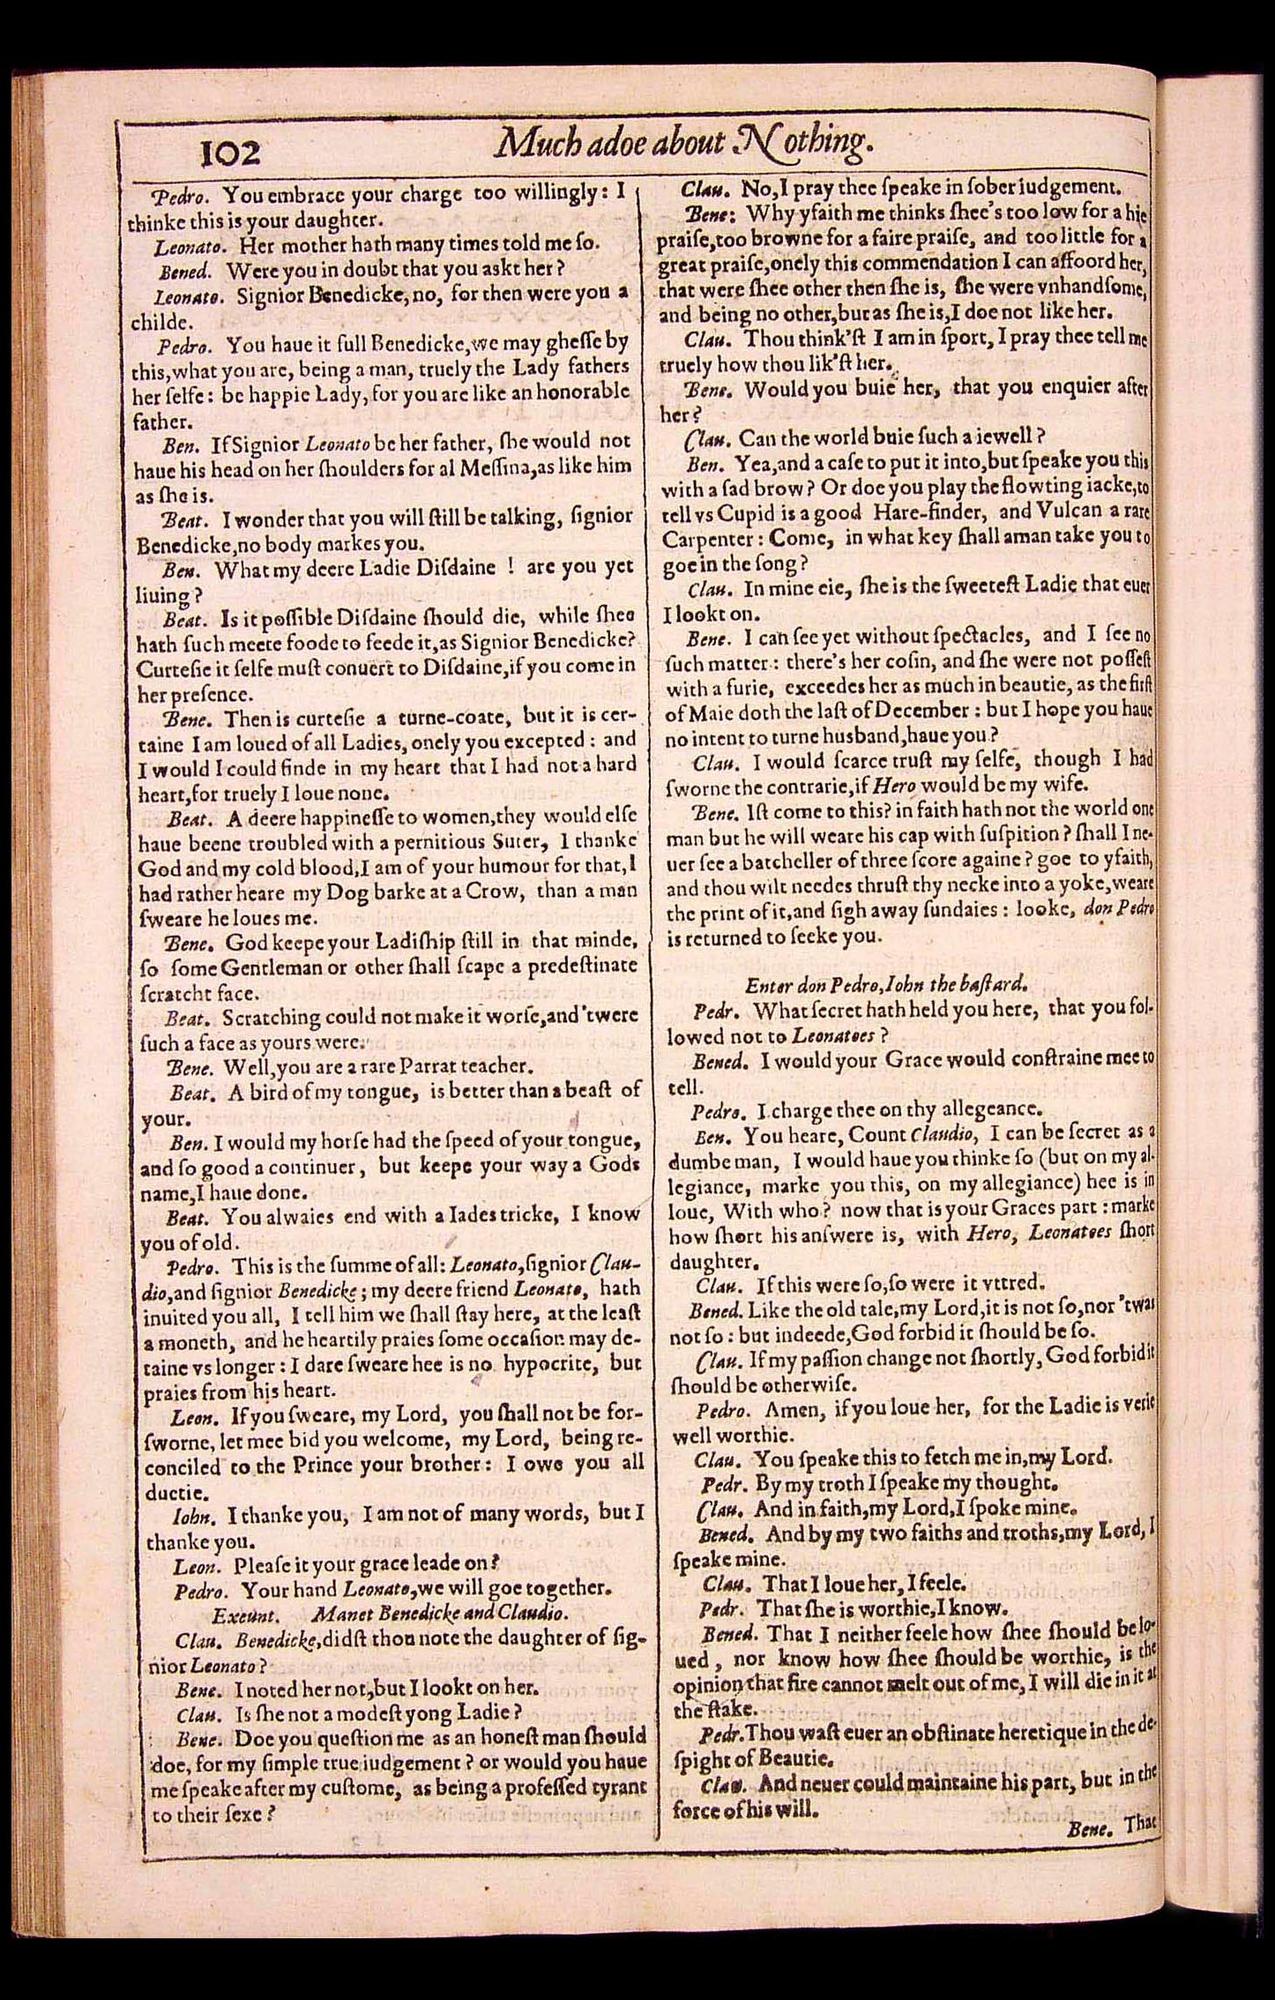 102
Much adoe about Nothing.
Pedro. You embrace your charge too willingly: I
thinke this is your daughter.
Leonato. Her mother hath many times told me so.
Bened. Were you in doubt that you askt her?
Leonato. Signior Benedicke, no, for then were you a
childe.
Pedro. You haue it full Benedicke, we may ghesse by
this, what you are, being a man, truely the Lady fathers
her selfe: be happie Lady, for you are like an honorable
father.
Ben. If Signior Leonato be her father, she would not
haue his head on her shoulders for al Messina, as like him
as she is.
Beat. I wonder that you will still be talking, signior
Benedicke, no body markes you.
Ben. What my deere Ladie Disdaine! are you yet
liuing?
Beat. Is it possible Disdaine should die, while shee
hath such meete foode to feede it, as Signior Benedicke?
Curtesie it selfe must conuert to Disdaine, if you come in
her presence.
Bene. Then is curtesie a turne-coate, but it is cer-
taine I am loued of all Ladies, onely you excepted: and
I would I could finde in my heart that I had not a hard
heart, for truely I loue none.
Beat. A deere happinesse to women, they would else
haue beene troubled with a pernitious Suter, I thanke
God and my cold blood, I am of your humour for that, I
had rather heare my Dog barke at a Crow, than a man
sweare he loues me.
Bene. God keepe your Ladiship still in that minde,
so some Gentleman or other shall scape a predestinate
scratcht face.
Beat. Scratching could not make it worse, and 'twere
such a face as yours were.
Bene. Well, you are a rare Parrat teacher.
Beat. A bird of my tongue, is better than a beast of
your.
Ben. I would my horse had the speed of your tongue,
and so good a continuer, but keepe your way a Gods
name, I haue done.
Beat. You alwaies end with a Iades tricke, I know
you of old.
Pedro. This is the summe of all: Leonato, signior Clau-
dio, and signior Benedicke; my deere friend Leonato, hath
inuited you all, I tell him we shall stay here, at the least
a moneth, and he heartily praies some occasion may de-
taine vs longer: I dare sweare hee is no hypocrite, but
praies from his heart.
Leon. If you sweare, my Lord, you shall not be for-
sworne, let mee bid you welcome, my Lord, being re-
conciled to the Prince your brother: I owe you all
ductie.
Iohn. I thanke you, I am not of many words, but I
thanke you.
Leon. Please it your grace leade on?
Pedro. Your hand Leonato, we will goe together.
Exeunt. Manet Benedicke and Claudio.
Clau. Benedicke, didst thou note the daughter of sig-
nior Leonato?
Bene. I noted her not, but I lookt on her.
Clau. Is she not a modest yong Ladie?
Bene. Doe you question me as an honest man should
doe, for my simple true iudgement? or would you haue
me speake after my custome, as being a professed tyrant
to their sexe?
Clau. No, I pray thee speake in sober iudgement.
Bene: Why yfaith me thinks shee's too low for a hie
praise, too browne for a faire praise, and too little for a
great praise, onely this commendation I can affoord her,
that were shee other then she is, she were vnhandsome,
and being no other, but as she is, I doe not like her.
Clau. Thou think'st I am in sport, I pray thee tell me
truely how thou lik'st her.
Bene. Would you buie her, that you enquier after
her?
Clau. Can the world buie such a iewell?
Ben. Yea, and a case to put it into, but speake you this
with a sad brow? Or doe you play the flowting iacke, to
tell vs Cupid is a good Hare-finder, and Vulcan a rare
Carpenter: Come, in what key shall a man take you to
goe in the song?
Clau. In mine eie, she is the sweetest Ladie that euer
I lookt on.
Bene. I can see yet without spectacles, and I see no
such matter: there's her cosin, and she were not possest
with a furie, exceedes her as much in beautie, as the first
of Maie doth the last of December: but I hope you haue
no intent to turne husband, haue you?
Clau. I would scarce trust my selfe, though I had
sworne the contrarie, if Hero would be my wife.
Bene. Ist come to this? in faith hath not the world one
man but he will weare his cap with suspition? shall I ne-
uer see a batcheller of three score againe? goe to yfaith,
and thou wilt needes thrust thy necke into a yoke, weare
the print of it, and sigh away sundaies: looke, don Pedro
is returned to seeke you.
Enter don Pedro, Iohn the bastard.
Pedr. What secret hath held you here, that you fol-
lowed not to Leonatoes?
Bened. I would your Grace would constraine mee to
tell.
Pedro. I charge thee on thy allegeance.
Ben. You heare, Count Claudio, I can be secret as a
dumbe man, I would haue you thinke so (but on my al-
legiance, marke you this, on my allegiance) hee is in
loue, With who? now that is your Graces part: marke
how short his answere is, with Hero, Leonatoes short
daughter.
Clau. If this were so, so were it vttred.
Bened. Like the old tale, my Lord, it is not so, nor 'twas
not so: but indeede, God forbid it should be so.
Clau. If my passion change not shortly, God forbid it
should be otherwise.
Pedro. Amen, if you loue her, for the Ladie is verie
well worthie.
Clau. You speake this to fetch me in, my Lord.
Pedr. By my troth I speake my thought.
Clau. And in faith, my Lord, I spoke mine.
Bened. And by my two faiths and troths, my Lord, I
speake mine.
Clau. That I loue her, I feele.
Pedr. That she is worthie, I know.
Bened. That I neither feele how shee should be lo-
ued, nor know how shee should be worthie, is the
opinion that fire cannot melt out of me, I will die in it at
the stake.
Pedr. Thou wast euer an obstinate heretique in the de-
spight of Beautie.
Clau. And neuer could maintaine his part, but in the
force of his will.
Bene. That